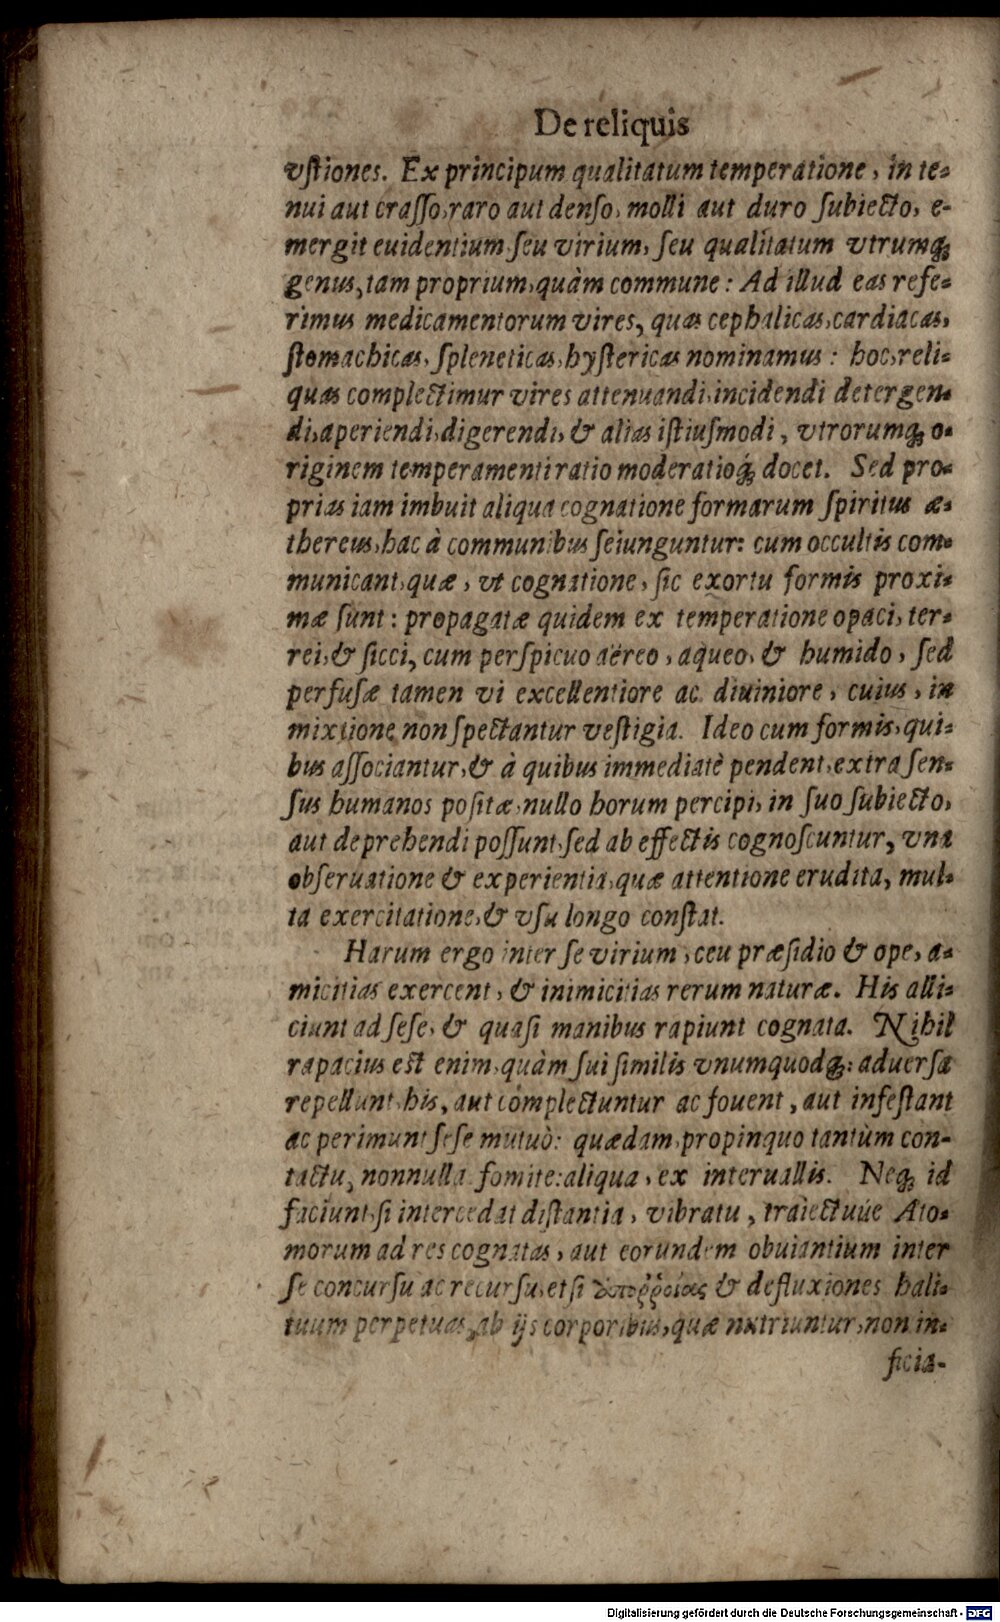 De reliquis
vſtiones. Ex principum qualitatum temperatione, in te-
nui aut craſſo, raro aut denſo, molli aut duro ſubiecto, e-
mergit euidentium ſeu virium, ſeu qualitatum vtrumq;
genus, tam proprium, quàm commune: Ad illud eas refe-
rimus medicamentorum vires, quas cephalicas, cardiacas,
ſtomachicas, ſpleneticas, hyſtericas nominamus: hoc, reli-
quas complectimur vires attenuandi, incidendi detergen-
di, aperiendi, digerendi, & alias iſtiuſmodi, vtrorumq; o-
riginem temperamenti ratio moderatioq́; docet. Sed pro-
prias iam imbuit aliqua cognatione formarum ſpiritus æ-
thereus, hac à communibus ſeiunguntur: cum occultis com-
municant, quæ, vt cognatione, ſic exortu formis proxi-
mæ ſunt: propagatæ quidem ex temperatione opaci, ter-
rei, & ſicci, cum perſpicuo aëreo, aqueo, & humido, ſed
perfuſæ tamen vi excellentiore ac diuiniore, cuius, in
mixtione non ſpectantur veſtigia. Ideo cum formis, qui-
bus aſſociantur, & à quibus immediatè pendent, extra ſen-
ſus humanos poſitæ, nullo horum percipi, in ſuo ſubiecto,
aut deprehendi poſſunt, ſed ab effectis cognoſcuntur, vna
obſeruatione & experientia, quæ attentione erudita, mul-
ta exercitatione, & vſu longo conſtat.
Harum ergo inter ſe virium, ceu præſidio & ope, a-
micitias exercent, & inimicitias rerum naturæ. His alli-
ciunt ad ſeſe, & quaſi manibus rapiunt cognata. Nihil
rapacius eſt enim, quàm ſui ſimilis vnumquodq;: aduerſa
repellunt his, aut complectuntur ac fouent, aut infeſtant
ac perimunt ſeſe mutuò: quædam, propinquo tantùm con-
tactu, nonnulla fomite: aliqua, ex interuallis. Neq; id
faciunt, ſi intercedat diſtantia, vibratu, traiectuúe Ato-
morum ad res cognatas, aut eorundem obuiantium inter
ſe concurſu ac recurſu, etſi ἀποῤῥοίας & defluxiones hali-
tuum perpetuas, ab ijs corporibus, quæ nutriuntur, non in-
ficia-
Digitalisierung gefördert durch die Deutsche Forschungsgemeinschaft - DFG